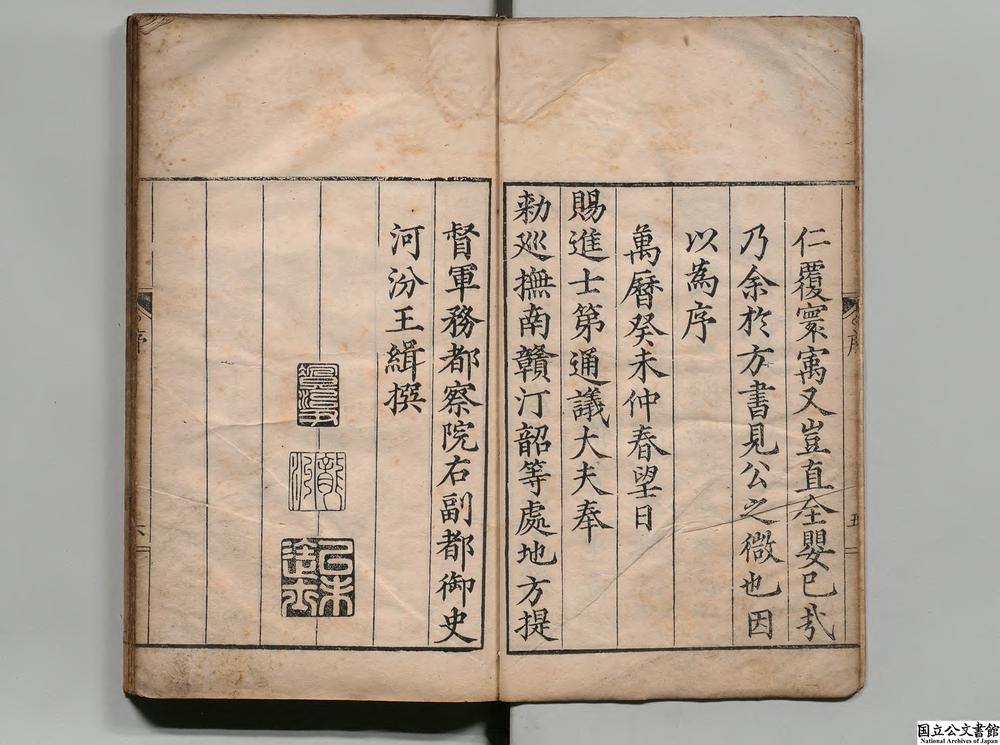 仁覆寰寓又豈直全嬰已哉
乃余於方書見公之微也因
以為序
萬曆癸未仲春望日
賜進士第通議大夫奉
勑巡撫南贛汀韶等處地方提
督軍務都察院右副都御史
河汾王緝撰
序
五
序
六
己未進士
国立公文書館
National Archives of Japan